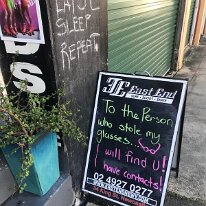 EAT
SLEEP
REPEAT
DS
East End
To the Person
who stole my
glasses..
I will find U!
I have contacts!
02 4927 0277
King St, Newcastle